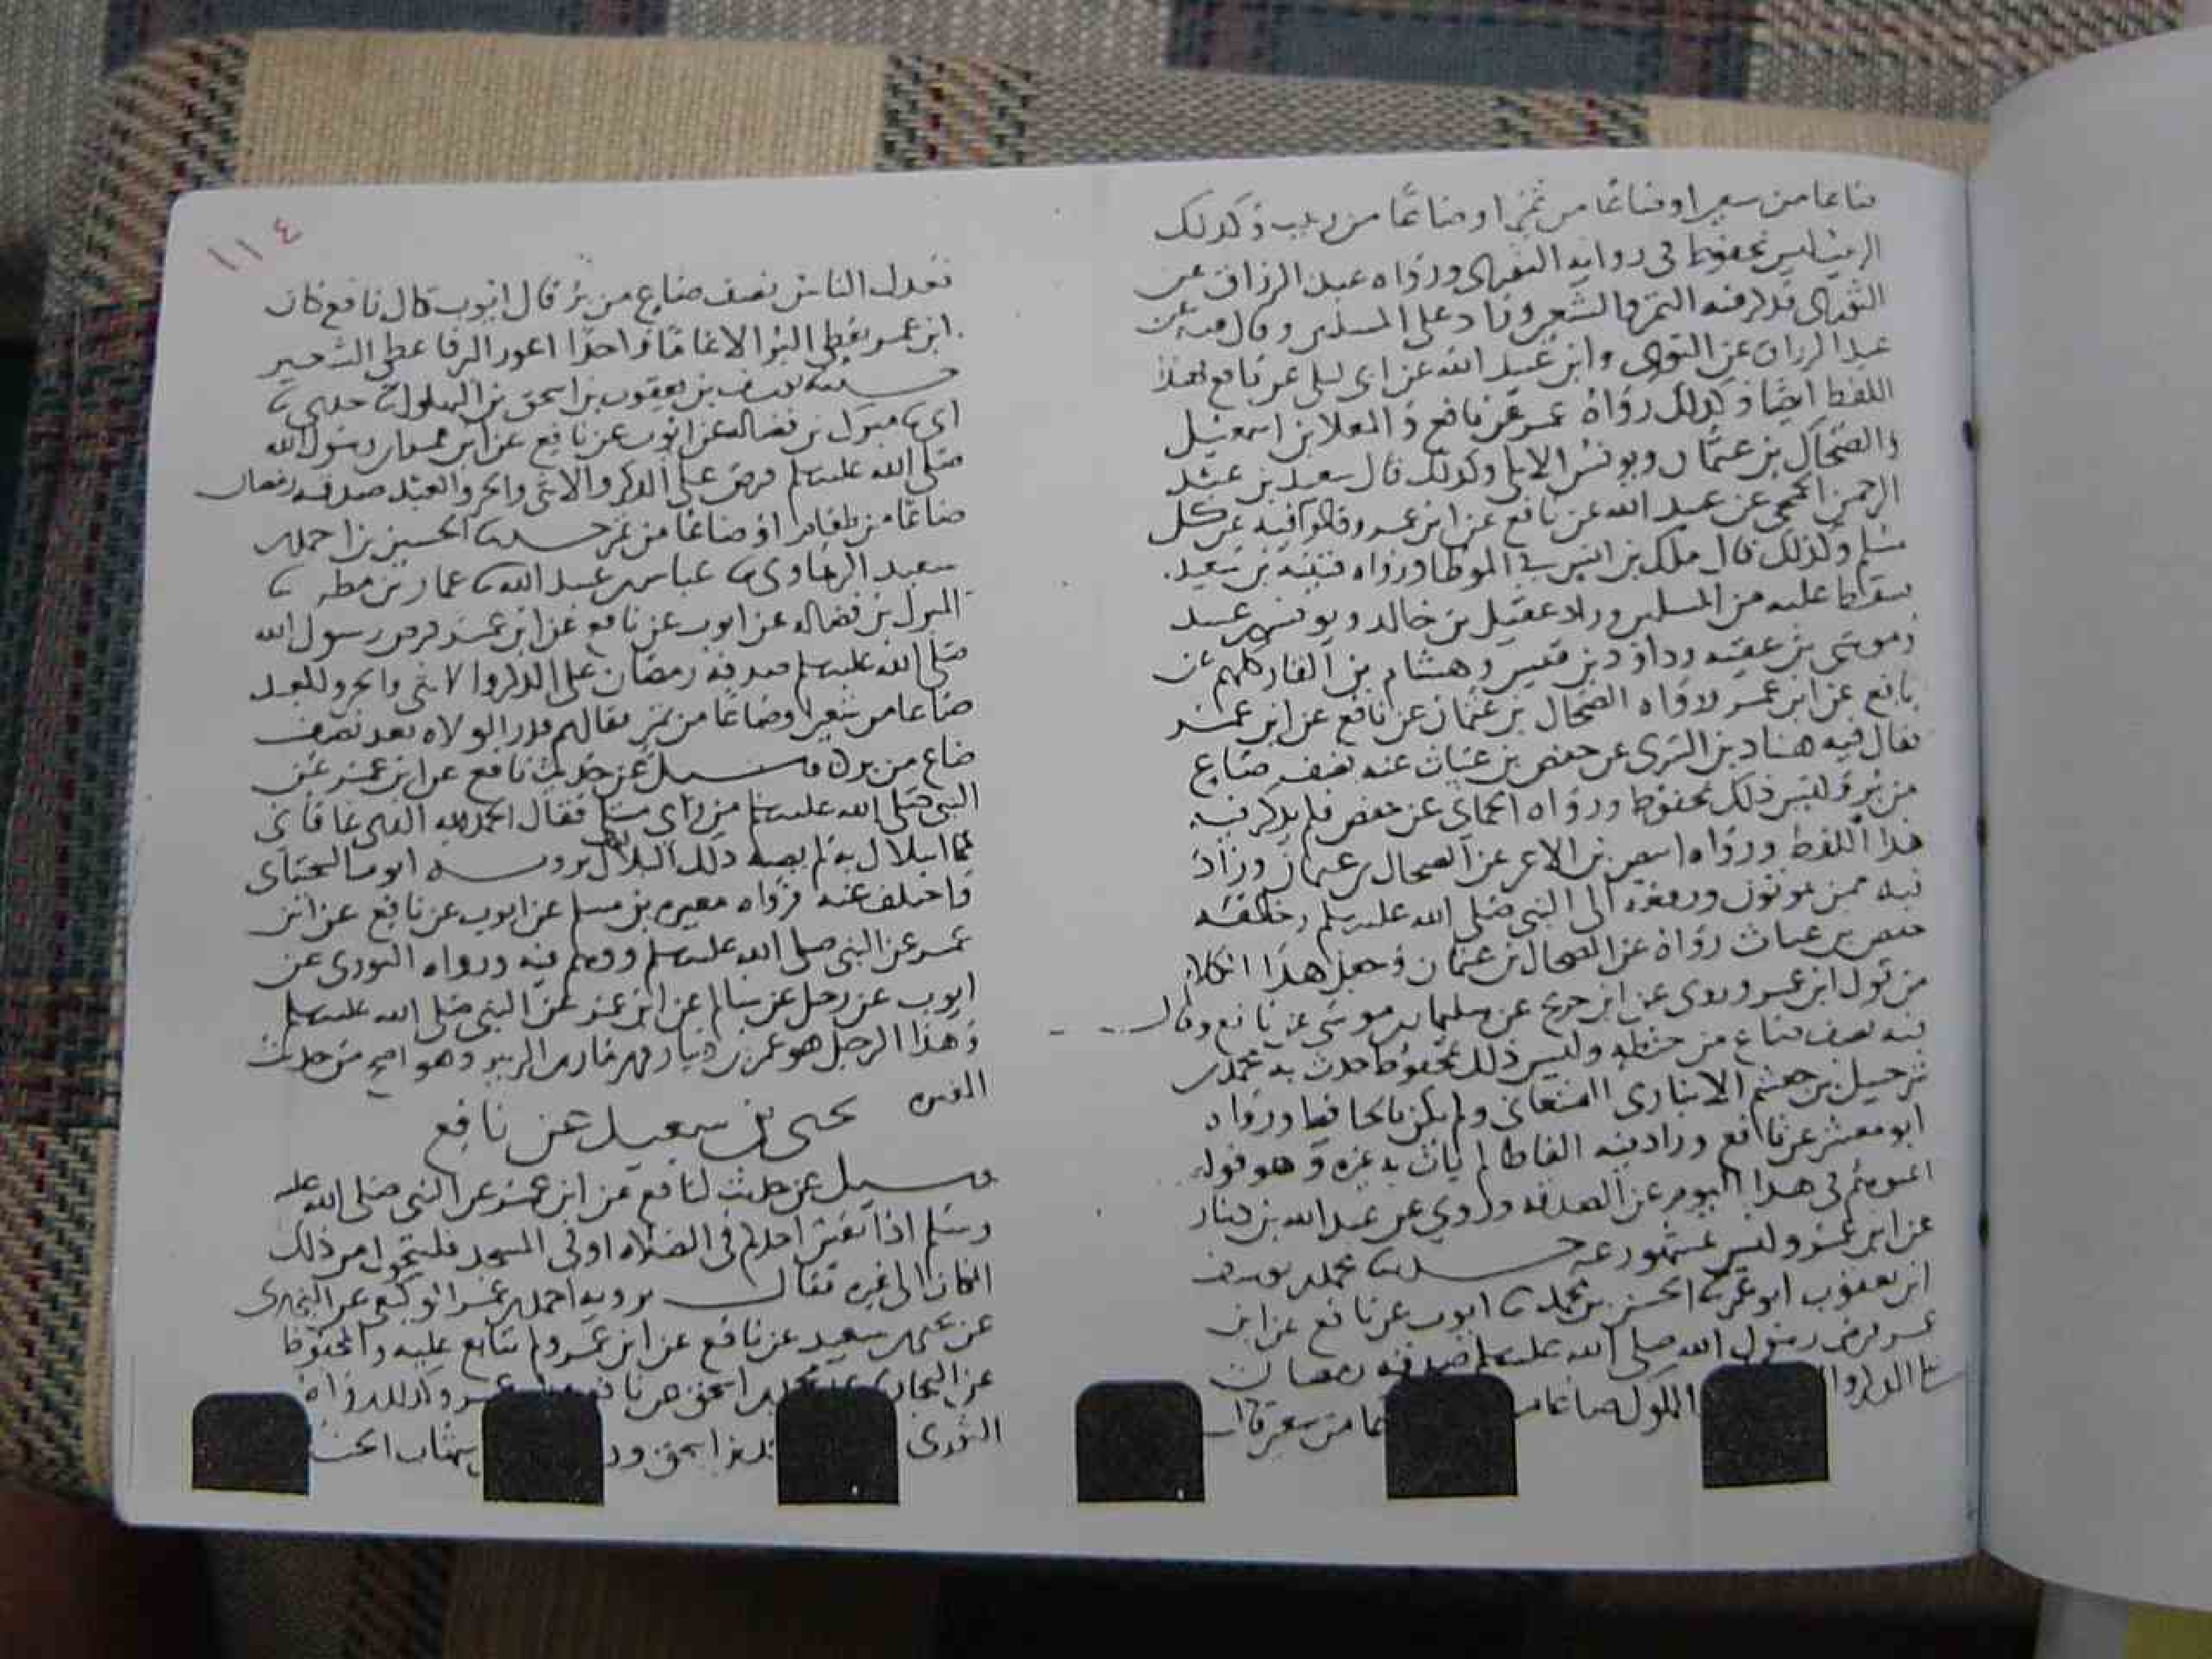 صاعا من شعير او صاعا من تمر او صاعا من زبيب وكذلك
الزبيب ليس بمحفوظ في رواية الثوري ورواه عبد الرزاق عن
الثوري فذكر فيه التمر والشعير وزاد على المسلمين وقال فيه عن
عبد الرزاق عن الثوري وابن عبيد الله عن ابن ابي ليلى عن نافع بهذا
اللفظ ايضا وكذلك رواه عمر عن نافع والمعلا بن اسمعيل
والضحاك بن عثمان ويونس الايلي وكذلك قال سعيد بن عبد
الرحمن الجمحي عن عبيد الله عن نافع عن ابن عمر وقالوا فيه عن كل
مسلم وكذلك قال ملك بن انس في الموطا ورواه قتيبة بن سعيد
عليه من المسلمين عقيل بن خالد ويونس عبيد
وموسى بن عقبة وداود بن قيس وهشام بن الغاز كلهم عن
نافع عن ابن عمر ورواه الضحاك بن عثمان عن نافع عن ابن عمر
فقال فيه هناد بن السري عن حفص بن غياث عنه نصف صاع
من بر وليس ذلك بمحفوظ ورواه الحماني عن حفص فلم يذكر فيه
هذا اللفظ ورواه بن الاعز عن الضحاك بن عثمان وزاد
فيه ممن تمونون ورفعه الى النبي صلى الله عليه وسلم وخالفه
حفص بن غياث رواه عن الضحاك بن عثمان وجعل هذا الكلام
من قول ابن عمر وروى عن ابن جريج عن سليمان بن موسى عن نافع وقال
فيه نصف صاع من حنطة وليس ذلك بمحفوظ حدث به محمد بن
شرحبيل بن جعشم الانباري الصنعاني ولم يكن بالحافظ ورواه
ابو معشر عن نافع وزاد فيه الفاظا لم يات به غيره وهو قوله
اغنوهم في هذا اليوم عن الصدقة وروي عن عبد الله بن دينار
عن ابن عمر وليس بمشهور عنه حدثنا محمد بن يوسف
ابن يعقوب ابو عمر ثنا الحسن بن محمد ثنا ايوب عن نافع عن ابن
عمر فرض رسول الله صلى الله عليه وسلم صدقة رمضان
على الذكر وا المملوك صاعا من من شعير قال
١١٤
فعدل الناس نصف صاع من بر قال ايوب قال نافع كان
ابن عمر يعطي التمر الا عاما واحدا اعوز التمر فاعطى الشعير
حدثنا يوسف بن يعقوب بن اسحق بن البهلول ثنا جدي ثنا
ابي ثنا مبرك بن فضالة عن ايوب عن نافع عن ابن عمر ان رسول الله
صلى الله عليه وسلم فرض على الذكر والانثى والحر والعبد صدقة رمضان
صاعا من طعام او صاعا من تمر حدثنا الحسين بن احمد بن
سعيد الرهاوي ثنا عباس بن عبيد الله ثنا عمار بن مطر ثنا
المبرك بن فضالة عن ايوب عن نافع عن ابن عمر فرض رسول الله
صلى الله عليه وسلم صدقة رمضان على الذكر والانثى والحر والعبد
صاعا من شعير او صاعا من تمر بعد نصف
صاع من بر وسئل عن حديث نافع عن ابن عمر عن
النبي صلى الله عليه وسلم من راى مبتلى فقال الحمد لله الذي عافاني
مما ابتلاك به لم يصبه ذلك البلا فقال يرويه ايوب السختياني
واختلف عنه فرواه مغيرة بن مسلم عن ايوب عن نافع عن ابن
عمر عن النبي صلى الله عليه وسلم ووهم فيه ورواه الثوري عن
ايوب عن رجل عن سالم عن ابن عمر عن النبي صلى الله عليه وسلم
وهذا الرجل هو عمرو بن دينار قهرمان ال الزبير وهو اصح من حديث
المغيرة
يحيى بن سعيد عن نافع
وسئل عن حديث لنافع عن ابن عمر عن النبي صلى الله عليه
وسلم اذا نعس احدكم في الصلاة او في المسجد فليتحول من ذلك
المكان الى غيره فقال يرويه احمد بن عمر الوكيعي عن المحاربي
عن يحيى بن سعيد عن نافع عن ابن عمر ولم يتابع عليه والمحفوظ
عن المحاربي عن محمد بن اسحق عن نافع عن ابن عمر وكذلك رواه
الثوري بن اسحق ور